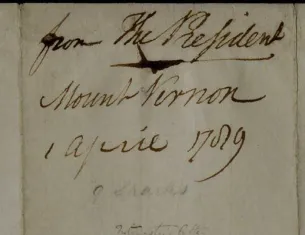 from The President
Mount Vernon
1 april 1789